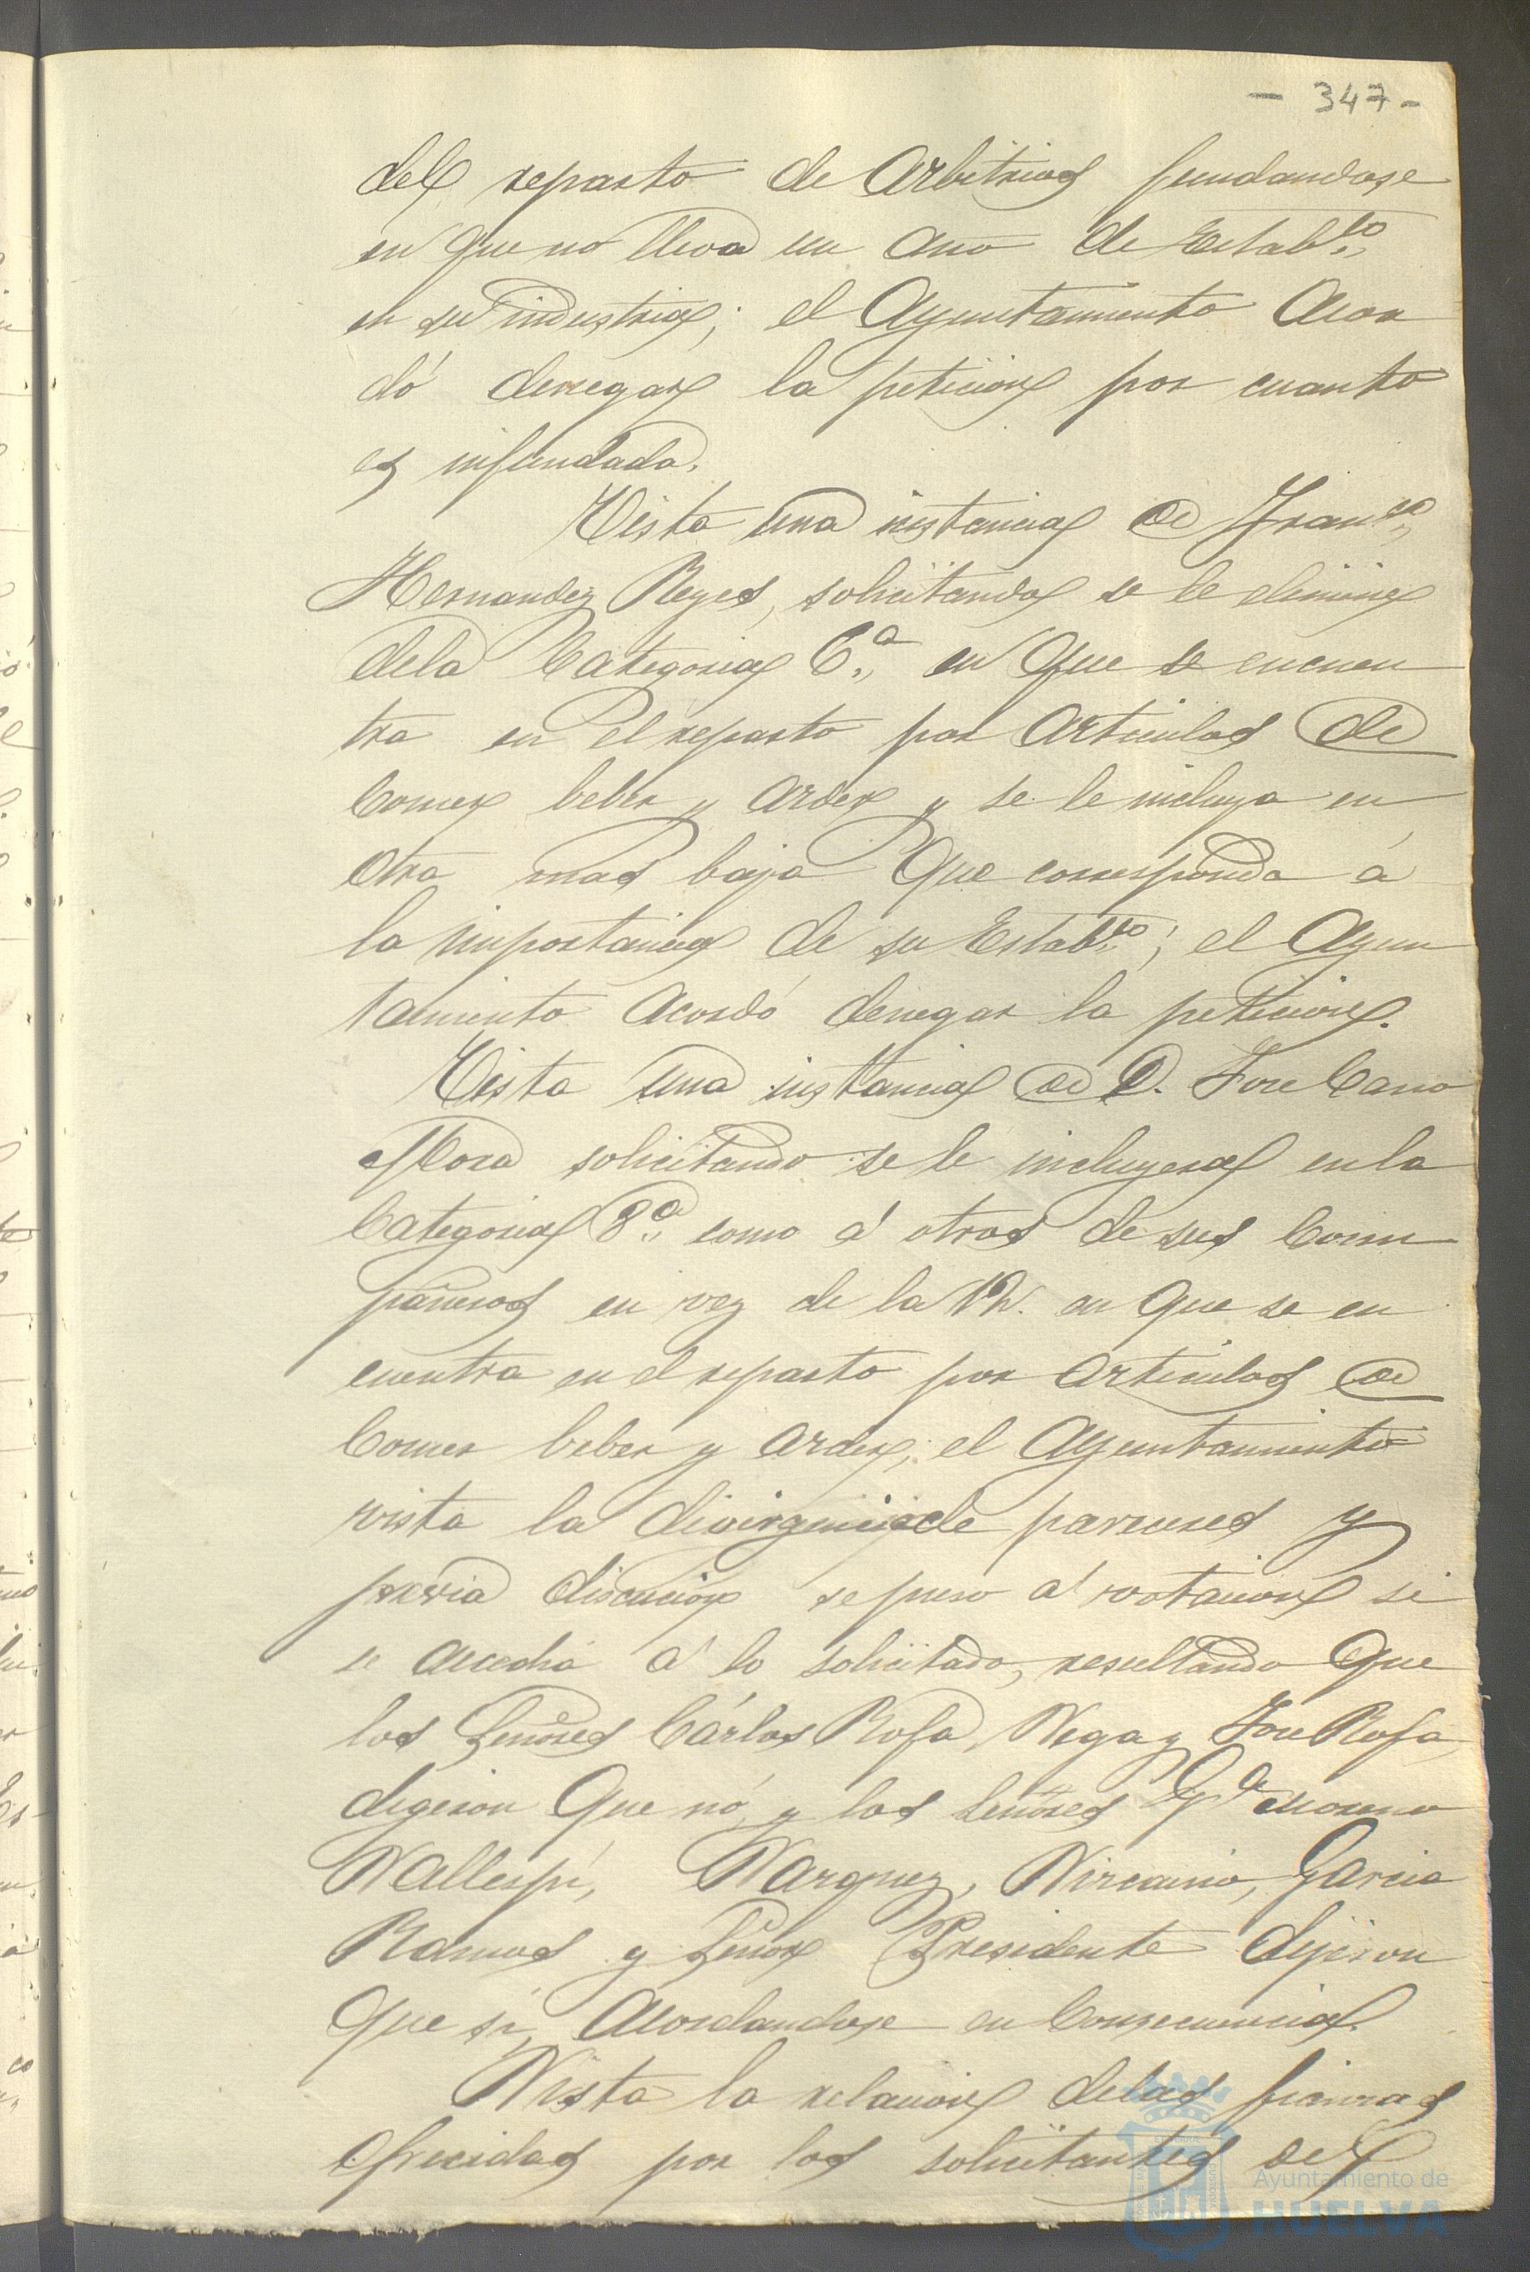 - 347 -
del reparto de Arbitrios fundandose
en que no lleva un año de Establ.to
en su industria; el Ayuntamiento Acor
dó denegar la peticion por cuanto
es infundada.
Vista una instancia de Fran.co
Hernandez Reyes, solicitando se le elimine
dela Categoria 6.a en que se encuen
tra en el reparto por Articulos de
Comer beber y Arder y se le incluya en
otra mas baja que corresponda á
la importancia de su Establ.to; el Ayun
tamiento Acordó denegar la peticion.
Vista una instancia de D. Jose Cano
Mora solicitando se le incluyera en la
Categoria 8.a como á otros de sus Com
pañeros en vez de la en que se en
cuentra en el reparto por Articulos de
Comer beber y Arder; el Ayuntamiento
vista la divirgencia de pareceres y
previa discucion se puso á votacion si
se accedia á lo solicitado, resultando que
los Señores Cárlos Rofa, Vega y Jose Rofa,
digeron que nó, y los Señores Moreno
Vallespí, Vazquez, Vizcaino, Garcia
Ramos y Señor Presidente dijeron
que sí, Acordandose en Consecuencia.
Vista la relacion delas fianzas
ofrecidas por los solicitantes del
Ayuntamiento de
HUELVA